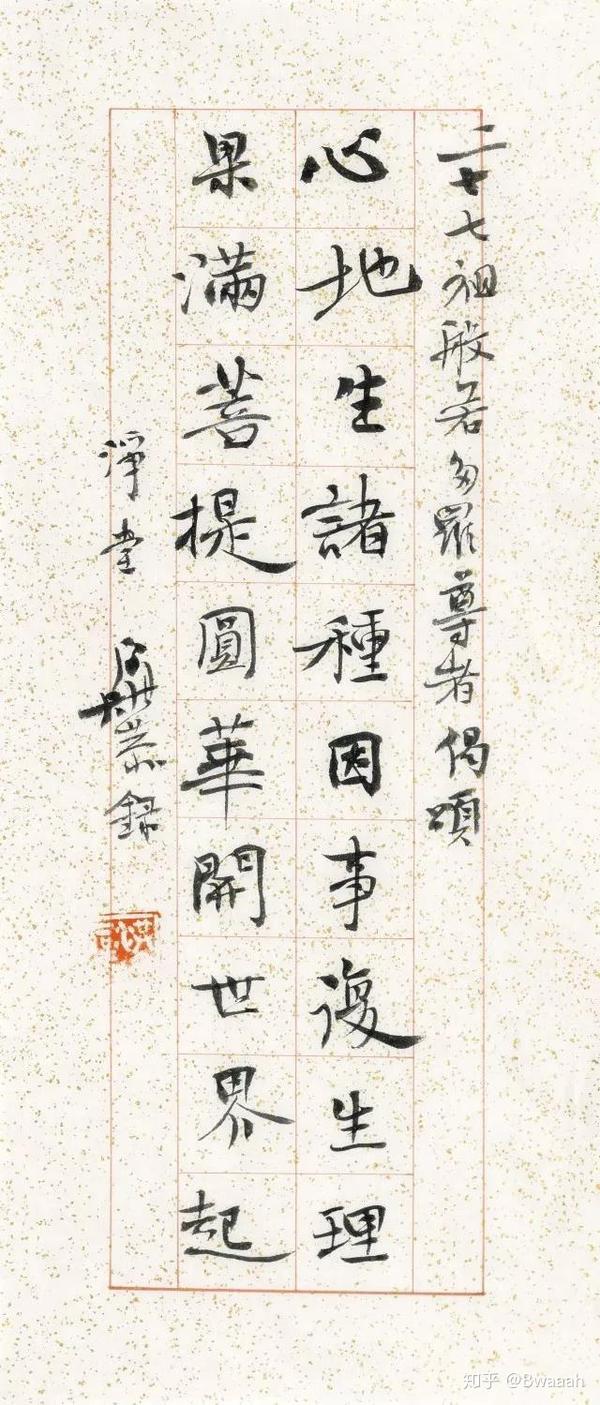 二十七祖般若多羅尊者偈頌
心地生諸種因事復生理
果滿菩提圓華開世界起
淨堂 錄
知乎 @Bwaaah